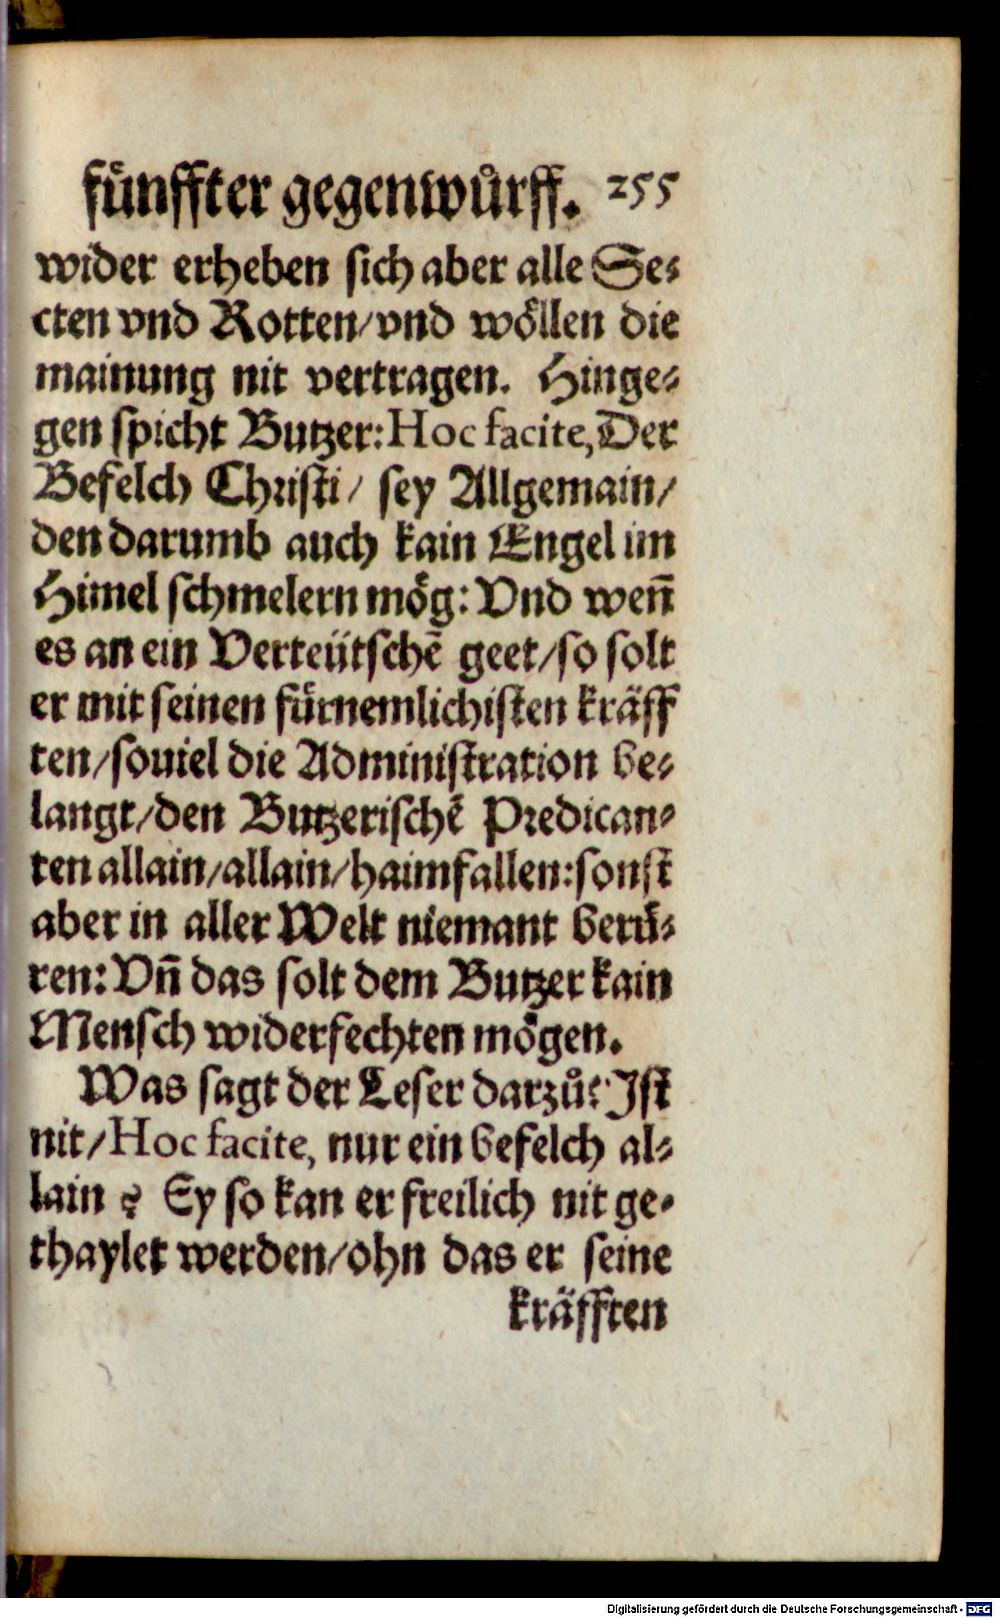 fünffter gegenwůrff. 255
wider erheben sich aber alle Se⸗
cten vnd Rotten/vnd wöllen die
mainung nit vertragen. Hinge⸗
gen spicht Butzer: Hoc facite, Der
Befelch Christi/ sey Allgemain/
den darumb auch kain Engel im
Himel schmelern mög: Vnd weñ
es an ein Verteütschẽ geet/so solt
er mit seinen fürnemlichisten kräff
ten/souiel die Administration be⸗
langt/den Butzerischẽ Predican⸗
ten allain/allain/haimfallen: sonst
aber in aller Welt niemant berü⸗
ren: Vñ das solt dem Butzer kain
Mensch widerfechten mögen.
Was sagt der Leser darzů? Ist
nit/Hoc facite, nur ein befelch al⸗
lain ? Ey so kan er freilich nit ge⸗
thaylet werden/ohn das er seine
kräfften
Digitalisierung gefördert durch die Deutsche Forschungsgemeinschaft - DFG